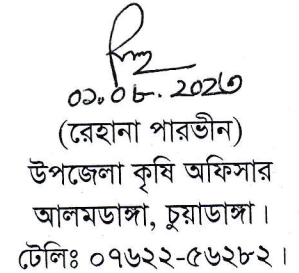 ০১.০৮.২০২৩
(রেহানা পারভীন)
উপজেলা কৃষি অফিসার
আলমডাঙ্গা, চুয়াডাঙ্গা।
টেলিঃ ০৭৬২২-৫৬২৮২।